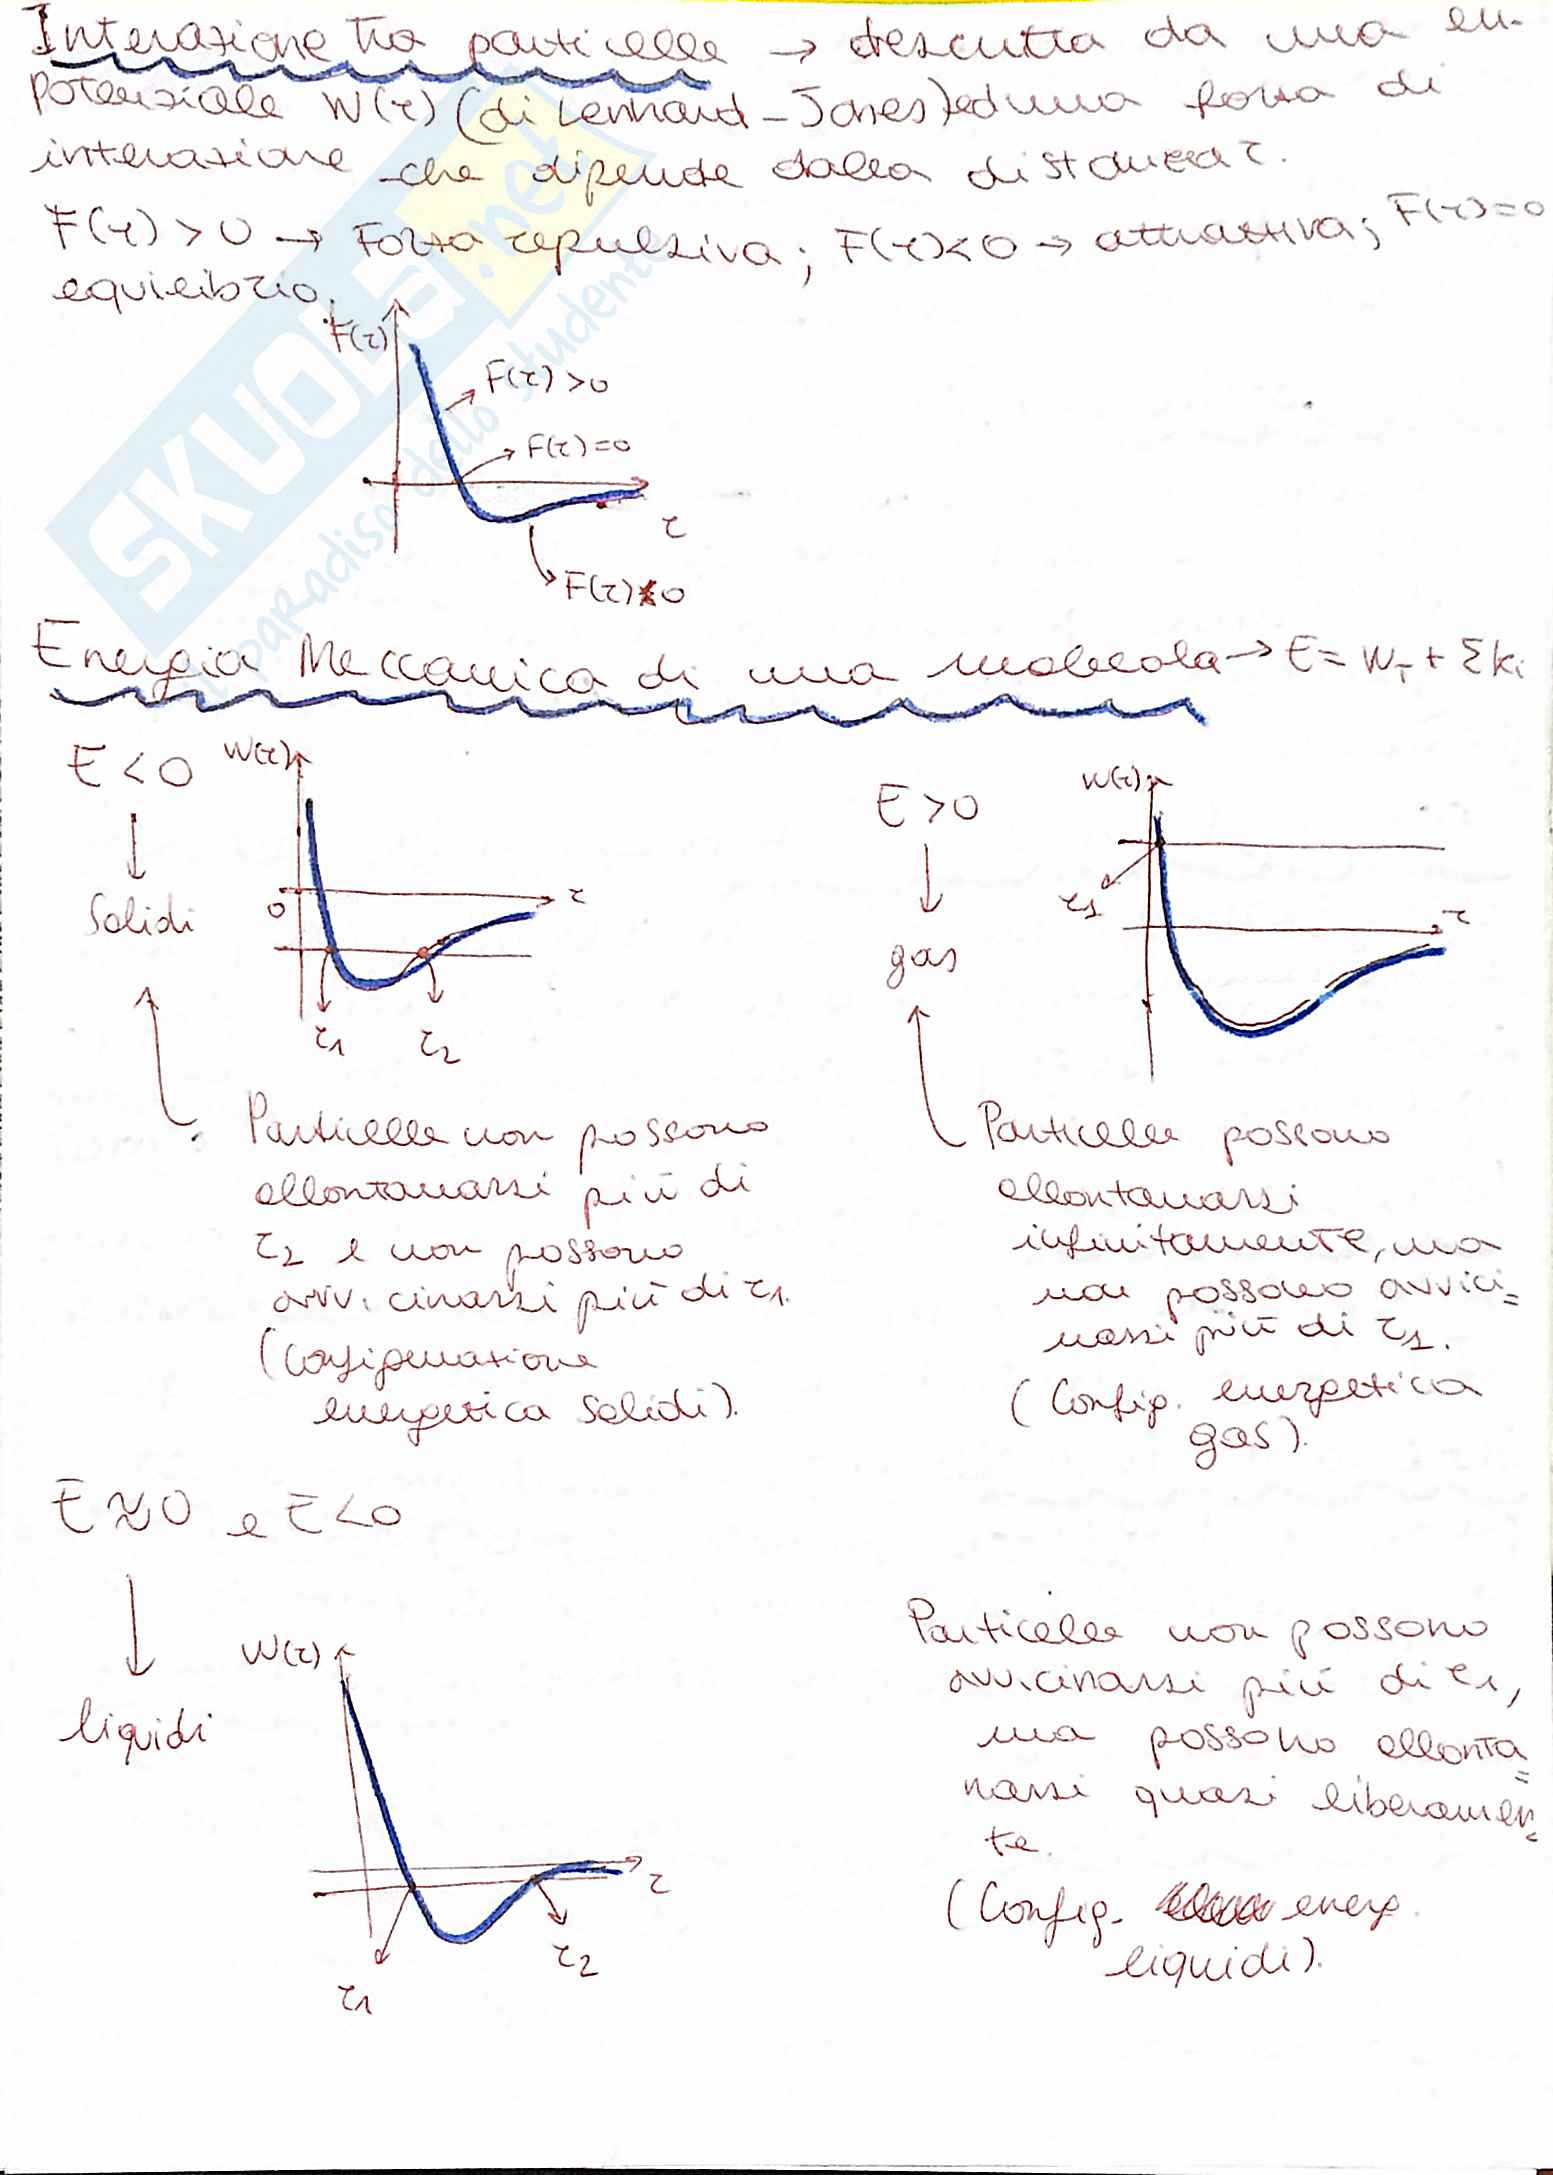 Interazione tra particelle → descritta da una en.
potenziale W(r) (di Lennard-Jones) ed una forza di
interazione che dipende dalla distanza r.
F(r) > 0 → Forza repulsiva; F(r) < 0 → attrattiva; F(r) = 0
equilibrio.
F(r)
F(r) > 0
F(r) = 0
r
F(r) < 0
SKUOLA.net
il paradiso dello studente
Energia Meccanica di una molecola → E = W_T + Σki
E < 0
W(r)
0
r
Solidi
r1
r2
E > 0
W(r)
r1
r
gas
Particelle non possono
allontanarsi più di
r2 e non possono
avvicinarsi più di r1.
(Configurazione
energetica solidi).
Particelle possono
allontanarsi
infinitamente, ma
non possono avvici=
narsi più di r1.
(Config. energetica
gas).
E ≈ 0 e E < 0
liquidi
W(r)
r
r1
r2
Particelle non possono
avvicinarsi più di r1,
ma possono allonta=
narsi quasi liberamen=
te.
(Config. energ.
liquidi).